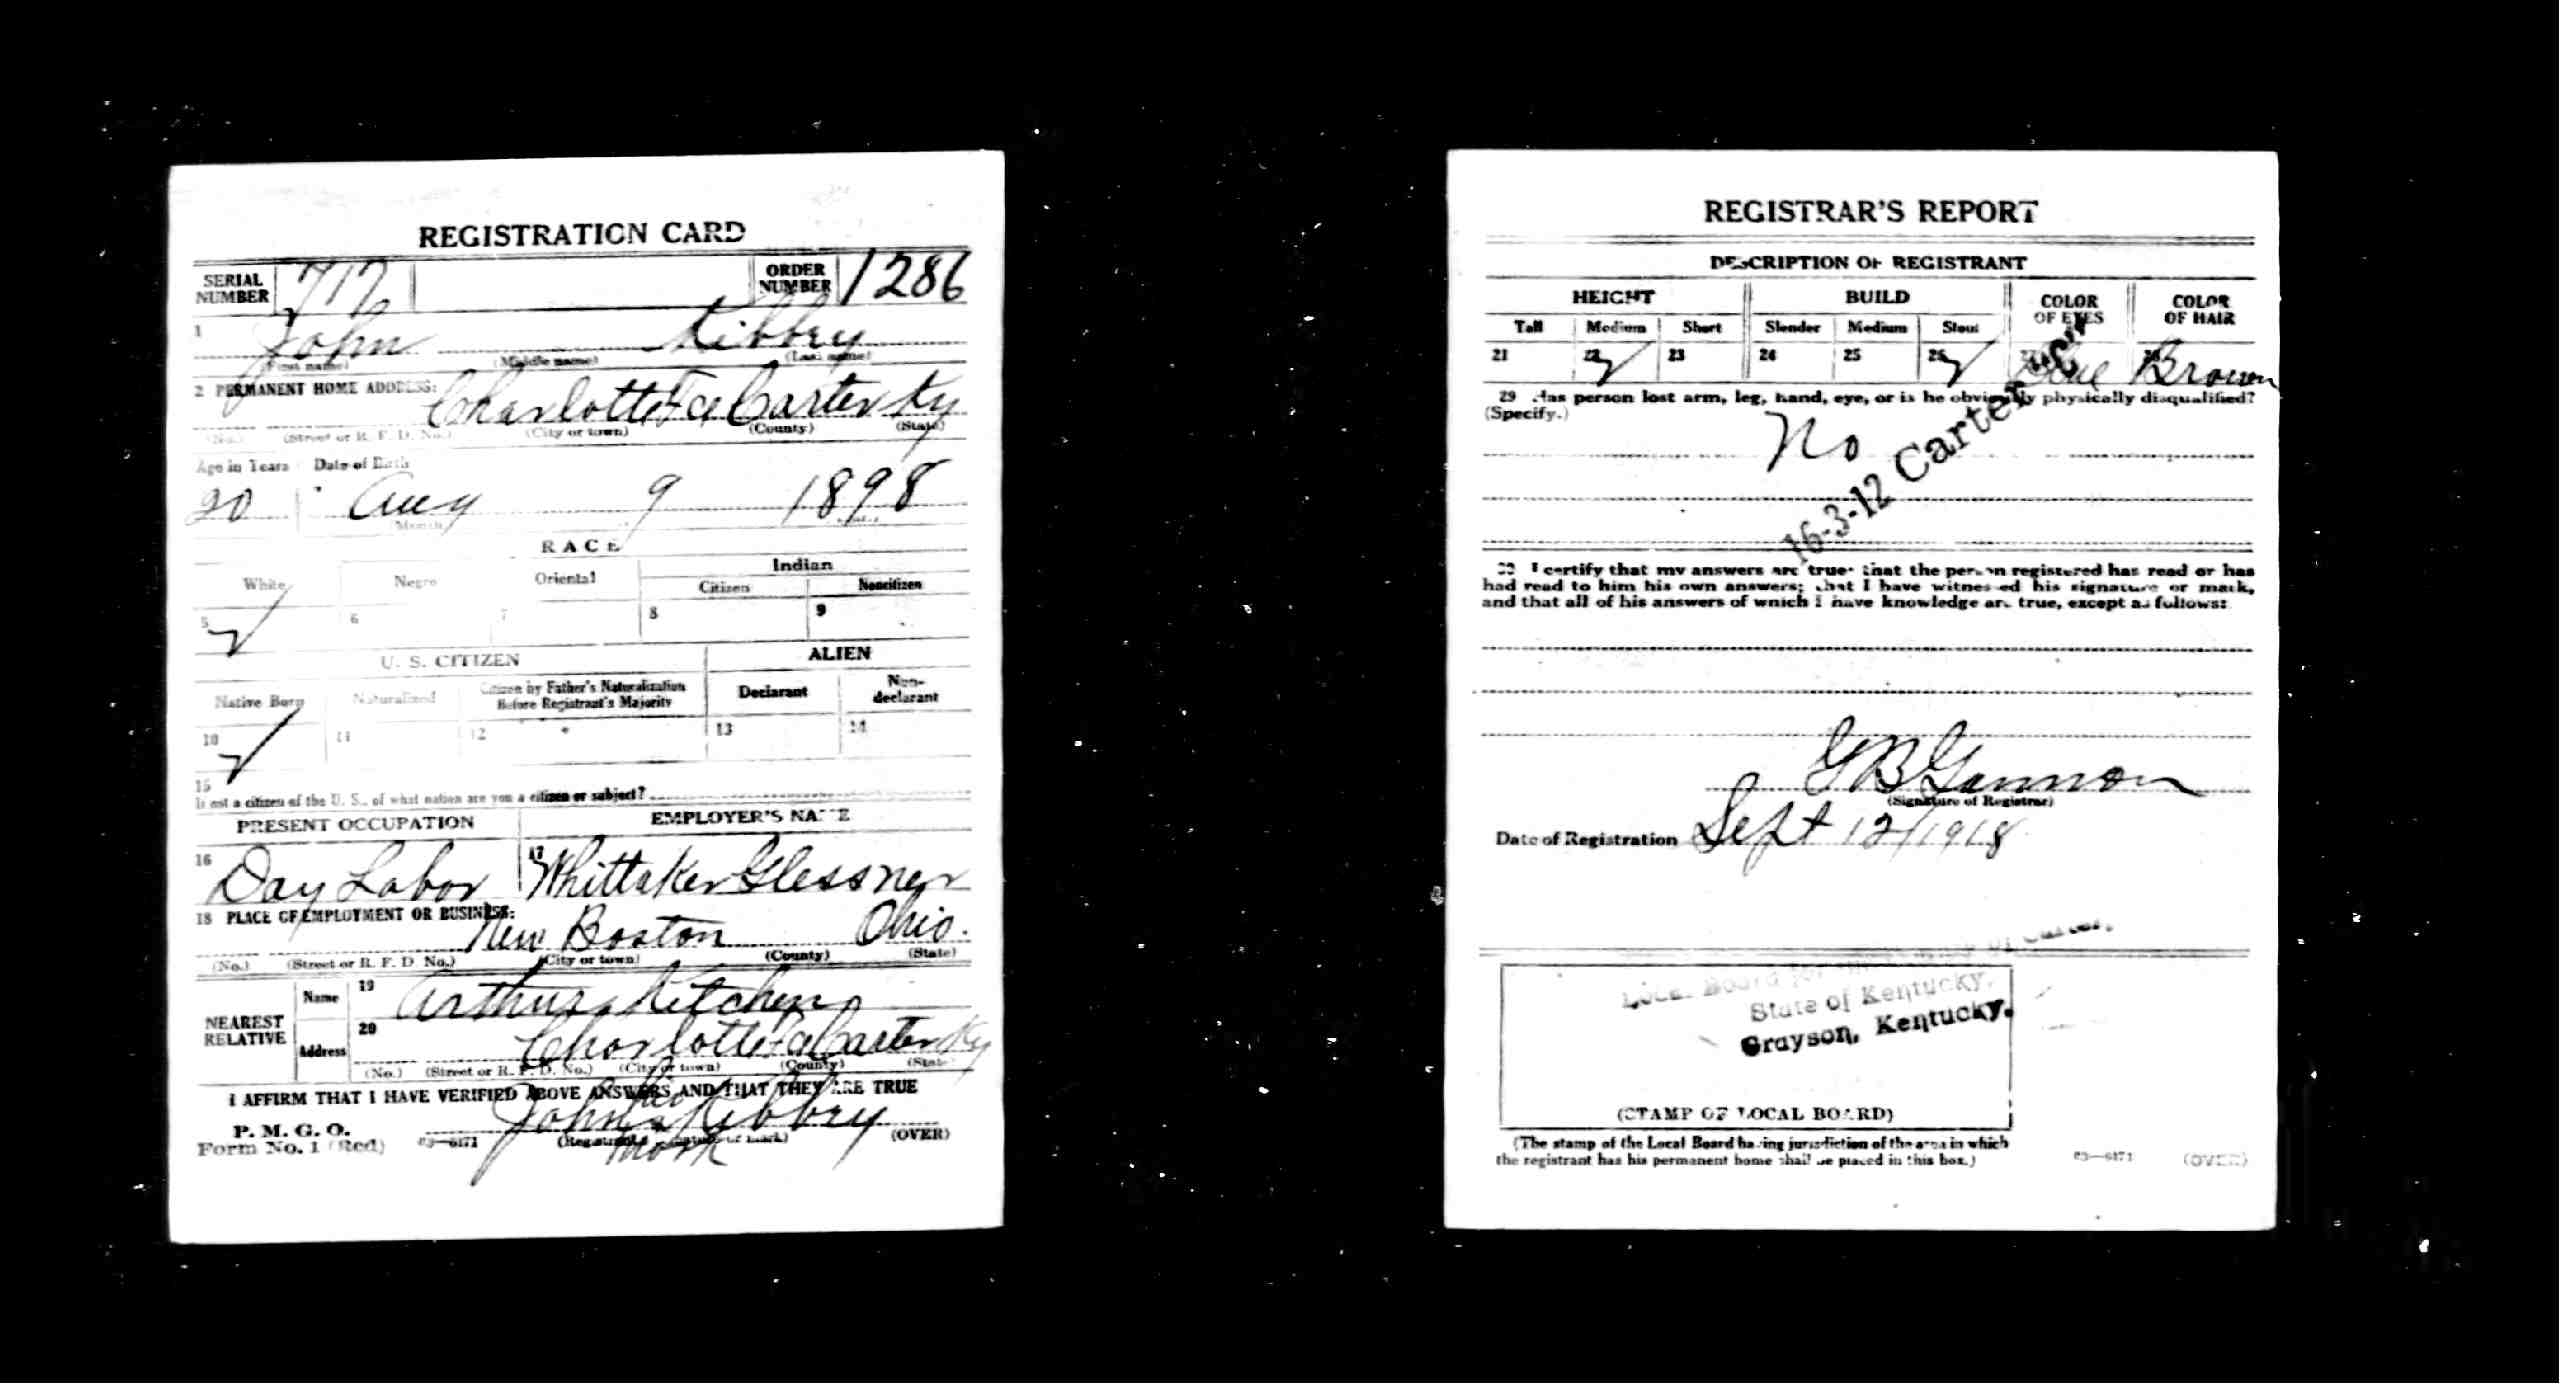 REGISTRATION CARD
SERIAL NUMBER 717 ORDER NUMBER 1286
1 John Kibbey
(First name) (Middle name) (Last name)
2 PERMANENT HOME ADDRESS:
Charlotte Fa Carter Ky
(No.) (Street or R. F. D. No.) (City or town) (County) (State)
Age in Years Date of Birth
20 Aug 9 1898
(Month)
RACE
White Negro Oriental Indian
Citizen Noncitizen
5 ✓ 6 7 8 9
U. S. CITIZEN ALIEN
Native Born Naturalized Citizen by Father's Naturalization Before Registrant's Majority Declarant Non-declarant
10 ✓ 11 12 13 14
15
If not a citizen of the U. S., of what nation are you a citizen or subject?
PRESENT OCCUPATION EMPLOYER'S NAME
16 Day Labor 17 Whittaker Glessner
18 PLACE OF EMPLOYMENT OR BUSINESS:
New Boston Ohio.
(No.) (Street or R. F. D. No.) (City or town) (County) (State)
NEAREST RELATIVE
Name 19 Arthur Kitchen
Address 20 Charlotte Fa Carter Ky
(No.) (Street or R. F. D. No.) (City or town) (County) (State)
I AFFIRM THAT I HAVE VERIFIED ABOVE ANSWERS AND THAT THEY ARE TRUE
P. M. G. O.
Form No. 1 (Red) 03—6171
his
John x Kibbey
mark
(Registrant's signature or mark) (OVER)
REGISTRAR'S REPORT
DESCRIPTION OF REGISTRANT
HEIGHT BUILD COLOR OF EYES COLOR OF HAIR
Tall Medium Short Slender Medium Stout
21 22 ✓ 23 24 25 26 ✓ 27 Blue 28 Brown
29 Has person lost arm, leg, hand, eye, or is he obviously physically disqualified?
(Specify.)
No
16-3-12 Carter "C"
30 I certify that my answers are true; that the person registered has read or has
had read to him his own answers; that I have witnessed his signature or mark,
and that all of his answers of which I have knowledge are true, except as follows:
G B Gannon
(Signature of Registrar)
Date of Registration Sept 12/1918
Local Board for of Carter,
State of Kentucky,
Grayson, Kentucky.
(STAMP OF LOCAL BOARD)
(The stamp of the Local Board having jurisdiction of the area in which
the registrant has his permanent home shall be placed in this box.)
03—6171 (OVER)